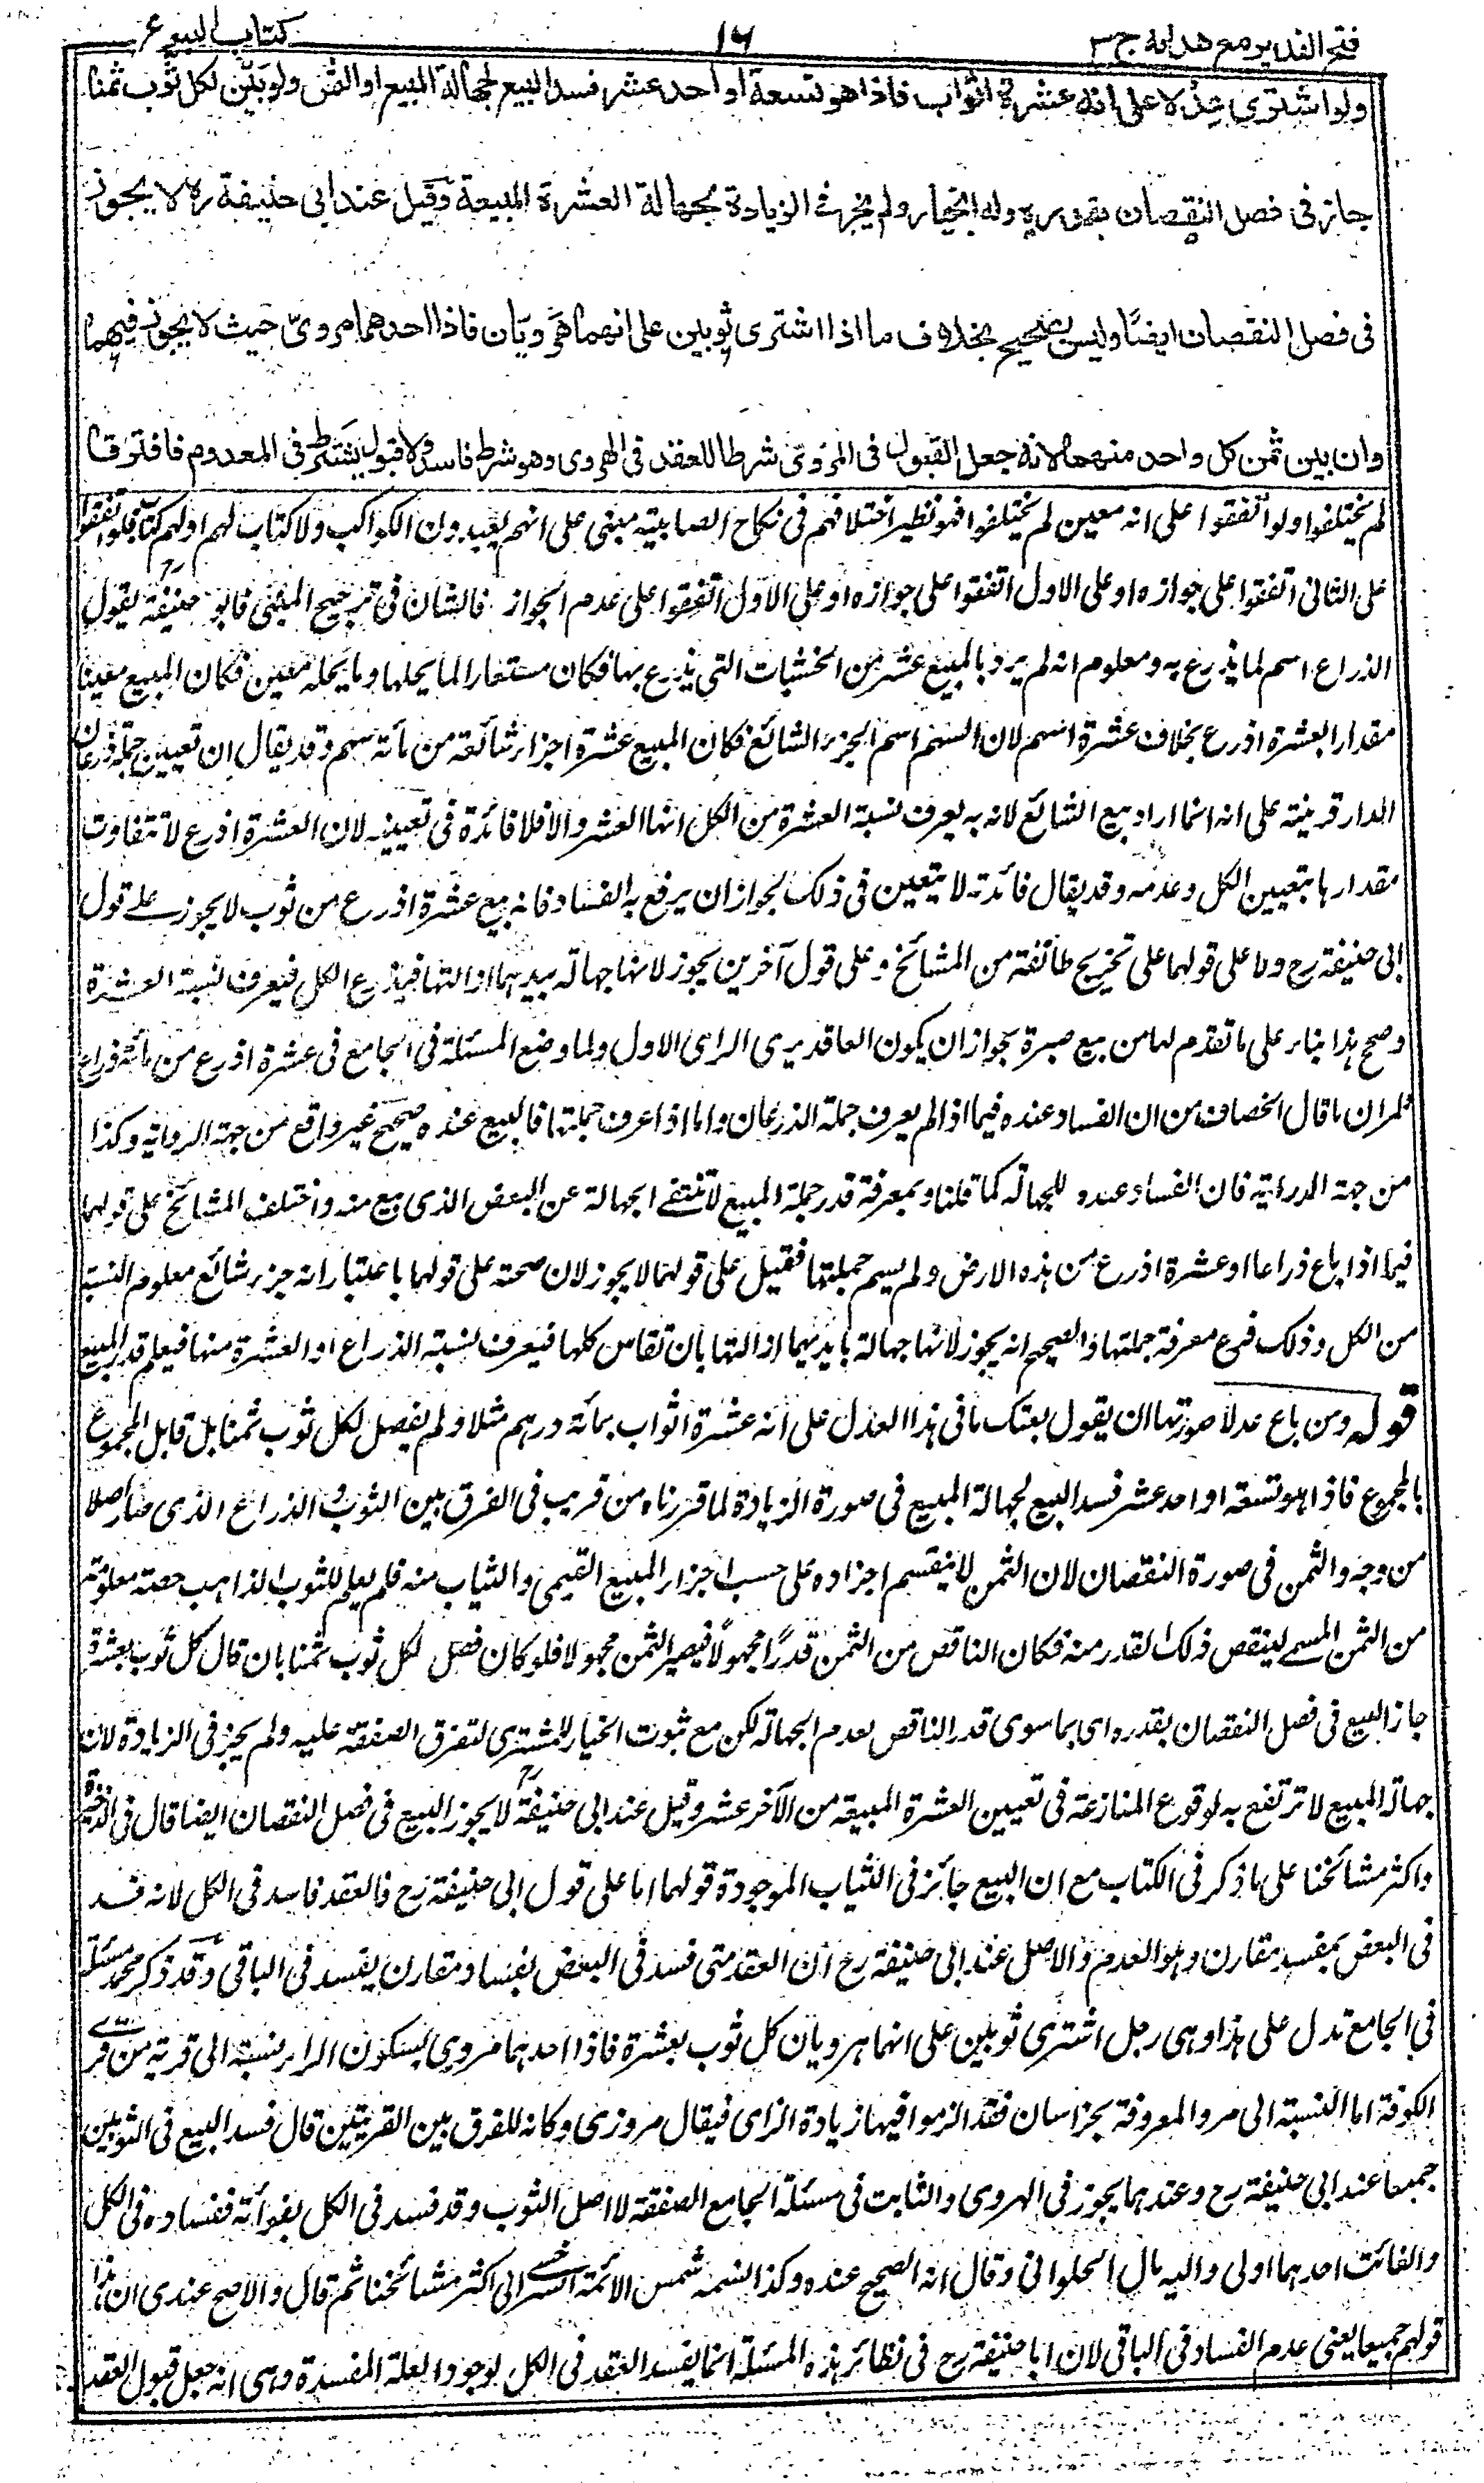 فتح القدير مع هداية ج ٣
١٦
كتاب البيوع
ولو اشترى عدلا على انه عشرة اثواب فاذا هو تسعة او احد عشر فسد البيع لجهالة المبيع او الثمن ولو بيّن لكل ثوب ثمنا
جاز فى فصل النقصان بقدره وله الخيار ولم يجز فى الزيادة لجهالة العشرة المبيعة وقيل عند ابى حنيفة ره لا يجوز
فى فصل النقصان ايضًا وليس بصحيح بخلاف ما اذا اشترى ثوبين على انهما هرويان فاذا احدهما مروىّ حيث لا يجوز فيهما
وان بين ثمن كل واحد منهما لانه جعل القبول فى المروىّ شرطا للعقد فى الهروى وهو شرط فاسد ولا قبول يشترط فى المعدوم فافترقا
لم يختلفوا ولو اتفقوا على انه معين لم يختلفوا فهو نظير اختلافهم فى نكاح الصابية مبنى على انهم يعبدون الكواكب ولا كتاب لهم او لهم كتاب فلو اتفقوا
على الثانى اتفقوا على جوازه او على الاول اتفقوا على جوازه او على الاول اتفقوا على عدم الجواز فالشان فى ترجيح المبنى فابو حنيفة رح يقول
الذراع اسم لما يذرع به ومعلوم انه لم يرد بالمبيع عشر من الخشبات التى يذرع بها فكان مستعارا لما يحلها وما يحله معين فكان المبيع معينا
مقدار العشرة اذرع بخلاف عشرة اسهم لان السهم اسم الجزء الشائع فكان المبيع عشرة اجزاء شائعة من مائة سهم وقد يقال ان تعيين جملة ذرعان
الدار قرينة على انه انما اراد بيع الشائع لانه به يعرف نسبة العشرة من الكل انها العشر والا فلا فائدة فى تعيينه لان العشرة اذرع لا تتفاوت
مقدارها بتعيين الكل وعدمه وقد يقال فائدته لا يتعين فى ذلك لجواز ان يرفع به الفساد فانه بيع عشرة اذرع من ثوب لا يجوز على قول
ابى حنيفة رح ولا على قولهما على تخريج طائفة من المشائخ وعلى قول آخرين يجوز لانها جهالة بيديهما ازالتها فيذرع الكل فيعرف نسبة العشرة
وصح هذا بناء على ما تقدم لهما من بيع صبرة بجواز ان يكون العاقد يرى الراى الاول ولما وضع المسئلة فى الجامع فى عشرة اذرع من مائة ذراع
ظهر ان ما قال الخصاف من ان الفساد عنده فيما اذا لم يعرف جملة الذرعان واما اذا عرف جملتها فالبيع عنده صحيح غير واقع من جهة الرواية وكذا
من جهة الدراية فان الفساد عنده للجهالة كما قلنا وبمعرفة قدر جملة المبيع لا تنتفى الجهالة عن البعض الذى بيع منه واختلف المشائخ على قولهما
فيما اذا باع ذراعا او عشرة اذرع من هذه الارض ولم يسم جملتها فقيل على قولهما لا يجوز لان صحته على قولهما باعتبار انه جزء شائع معلوم النسبة
من الكل وذلك فرع معرفة جملتها والصحيح انه يجوز لانها جهالة بايديهما ازالتها بان تقاس كلها فيعرف نسبة الذراع او العشرة منها فيعلم قدر المبيع
قوله ومن باع عدلا صورتها ان يقول بعتك ما فى هذا العدل على انه عشرة اثواب بمائة درهم مثلا ولم يفصل لكل ثوب ثمنا بل قابل المجموع
بالمجموع فاذا هو تسعة او احد عشر فسد البيع لجهالة المبيع فى صورة الزيادة لما قررناه من قريب فى الفرق بين الثوب والذراع الذى صار اصلا
من وجه والثمن فى صورة النقصان لان الثمن لا ينقسم اجزاؤه على حسب اجزاء المبيع القيمى والثياب منه فلم يعلم للثوب الذاهب حصة معلومة
من الثمن المسمى لينقص ذلك القدر منه فكان الناقص من الثمن قدرًا مجهولًا فيصير الثمن مجهولا فلو كان فصل لكل ثوب ثمنا بان قال كل ثوب بعشرة
جاز البيع فى فصل النقصان بقدره اى بما سوى قدر الناقص لعدم الجهالة لكن مع ثبوت الخيار للمشترى لتفرق الصفقة عليه ولم يجز فى الزيادة لان
جهالة المبيع لا ترتفع به لوقوع المنازعة فى تعيين العشرة المبيعة من الآخر عشر وقيل عند ابى حنيفة رح لا يجوز البيع فى فصل النقصان ايضا قال فى الذخيرة
واكثر مشائخنا على ما ذكر فى الكتاب مع ان البيع جائز فى الثياب الموجودة قولهما اما على قول ابى حنيفة رح فالعقد فاسد فى الكل لانه فسد
فى البعض بمفسد مقارن وهو العدم والاصل عند ابى حنيفة رح ان العقد متى فسد فى البعض بفساد مقارن يفسد فى الباقى وقد ذكر محمد مسئلة
فى الجامع تدل على هذا وهى رجل اشترى ثوبين على انهما هرويان كل ثوب بعشرة فاذا احدهما مروى بسكون الراء نسبة الى قرية من قرى
الكوفة اما النسبة الى مرو المعروفة بخراسان فقد الزموا فيها زيادة الزاى فيقال مروزى وكانه للفرق بين القريتين قال فسد البيع فى الثوبين
جميعا عند ابى حنيفة رح وعندهما يجوز فى الهروى والثابت فى مسئلة الجامع الصفقة لا اصل الثوب وقد فسد فى الكل بفواته ففساده فى الكل
والفائت احدهما اولى واليه مال الحلوانى وقال انه الصحيح عنده وكذا نسبه شمس الائمة السرخسى الى اكثر مشائخنا ثم قال والاصح عندى ان هذا
قولهم جميعا يعنى عدم الفساد فى الباقى لان ابا حنيفة رح فى نظائر هذه المسئلة انما يفسد العقد فى الكل لوجود العلة المفسدة وهى انه جعل قبول العقد